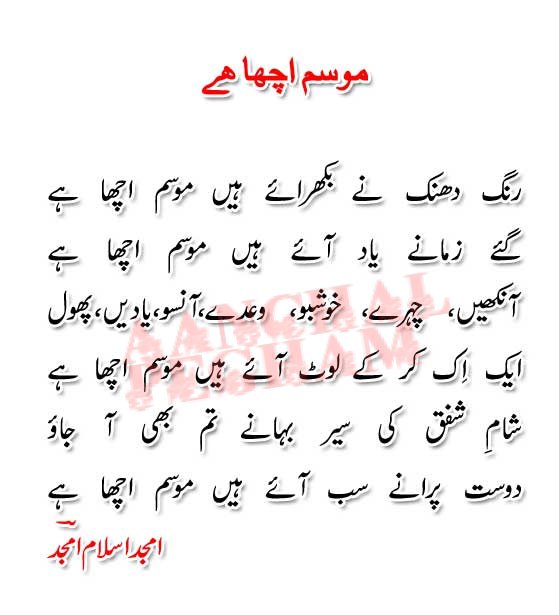 موسم اچھا ھے
رنگ دھنک نے بکھرائے ہیں موسم اچھا ہے
گئے زمانے یاد آئے ہیں موسم اچھا ہے
آنکھیں، چہرے، خوشبو، وعدے،آنسو،یادیں،پھول
ایک اِک کر کے لوٹ آئے ہیں موسم اچھا ہے
شامِ شفق کی سیر بہانے تم بھی آ جاؤ
دوست پرانے سب آئے ہیں موسم اچھا ہے
امجد اسلام امجد
AANCHAL
INGHAM